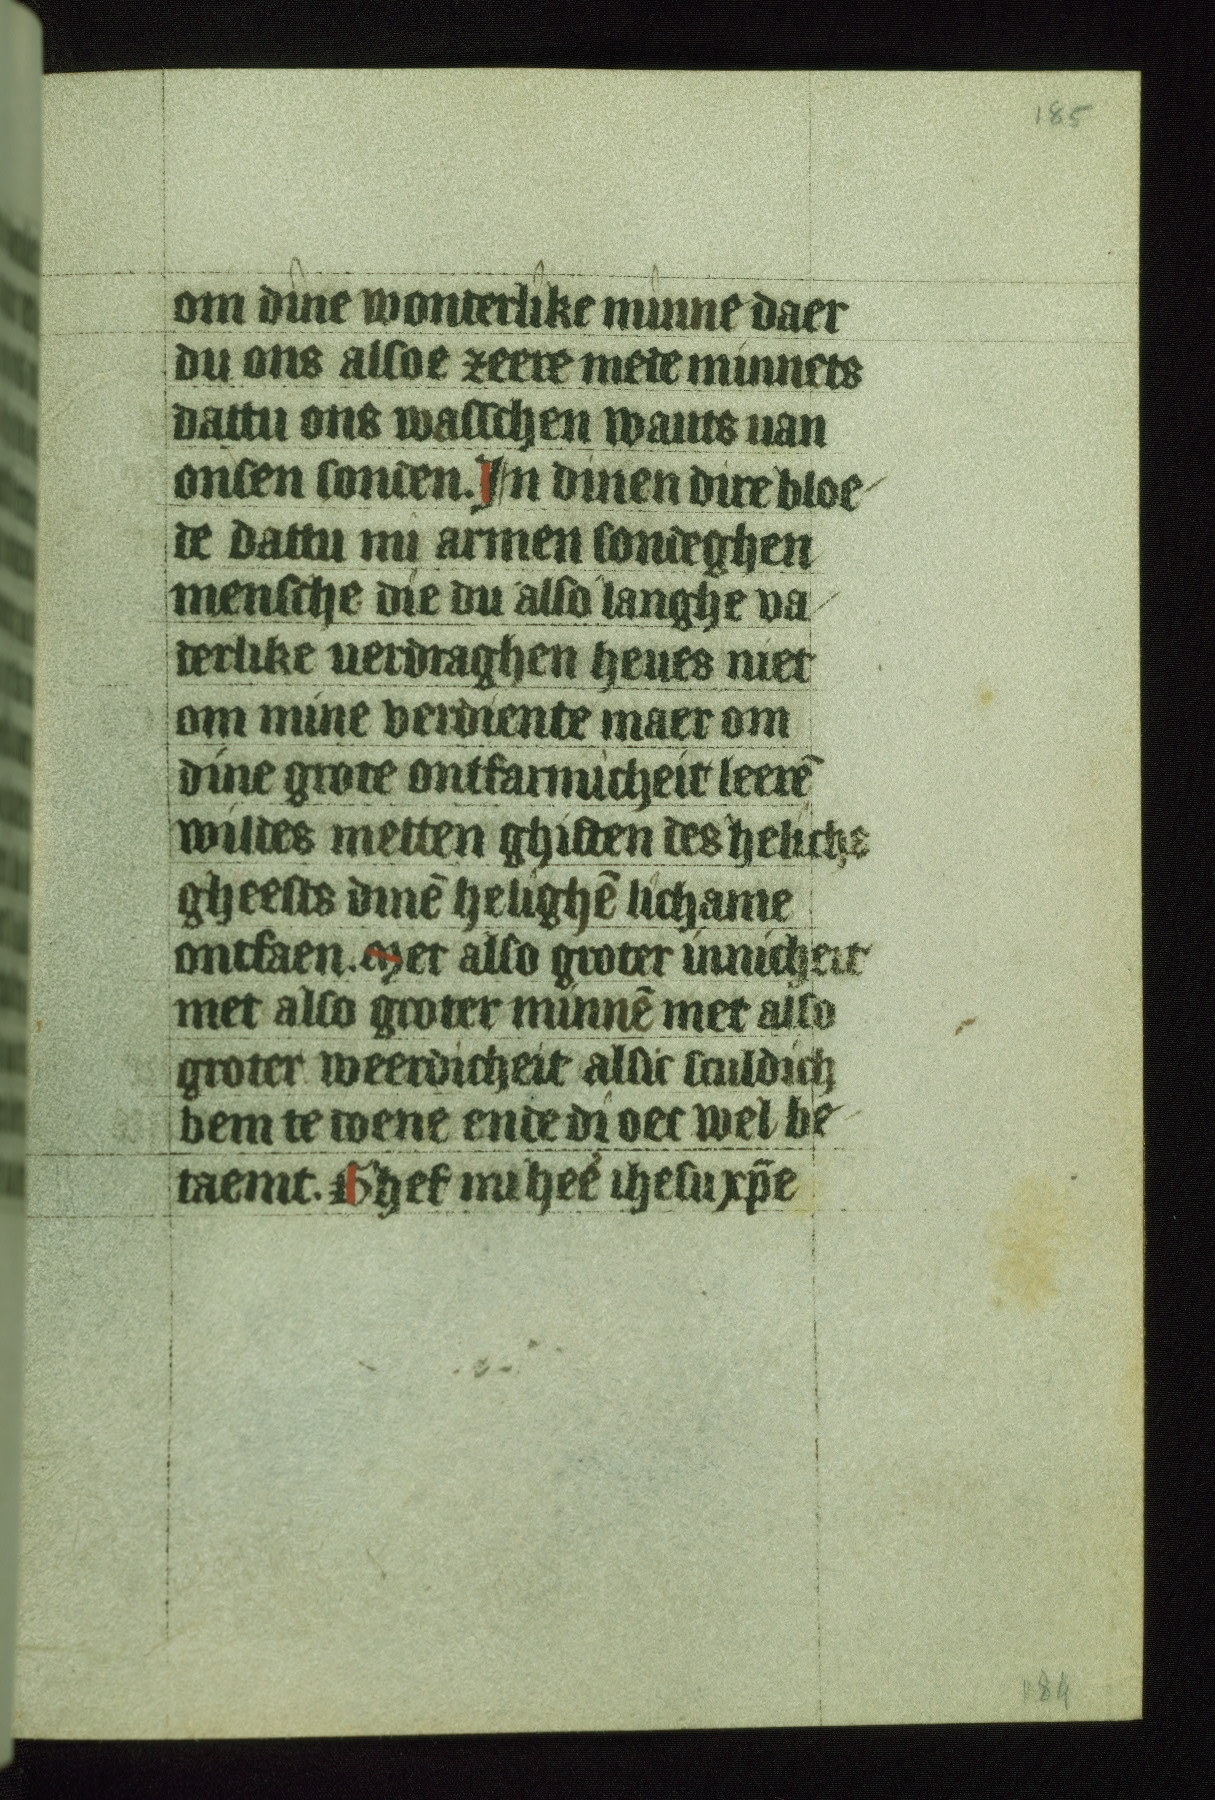 185
om dine wonderlike minne daer
du ons alsoe zeere mede minnets
dattu ons wasschen wauts uan
onsen sonden. In dinen dire bloe
de dattu mi armen sondeghen
mensche die du also langhe va
derlike uerdraghen heues niet
om mine verdiente maer om
dine grote ontfarmicheit leerē
wildes metten ghiften des helichs
gheests dinē helighē lichame
ontfaen. Met also groter innicheit
met also groter minnē met also
groter weerdicheit alsic sculdich
bem te doene ende di oec wel be
taemt. Ghef mi heē ihesu xp̄e
184